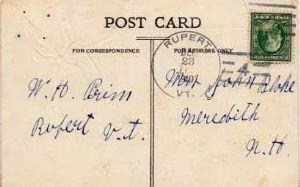 POST CARD
FOR CORRESPONDENCE
FOR ADDRESS ONLY
RUPERT
23
VT.
W. H. Prim
Rupert V.t.
John Blake
Meredith
N.H.